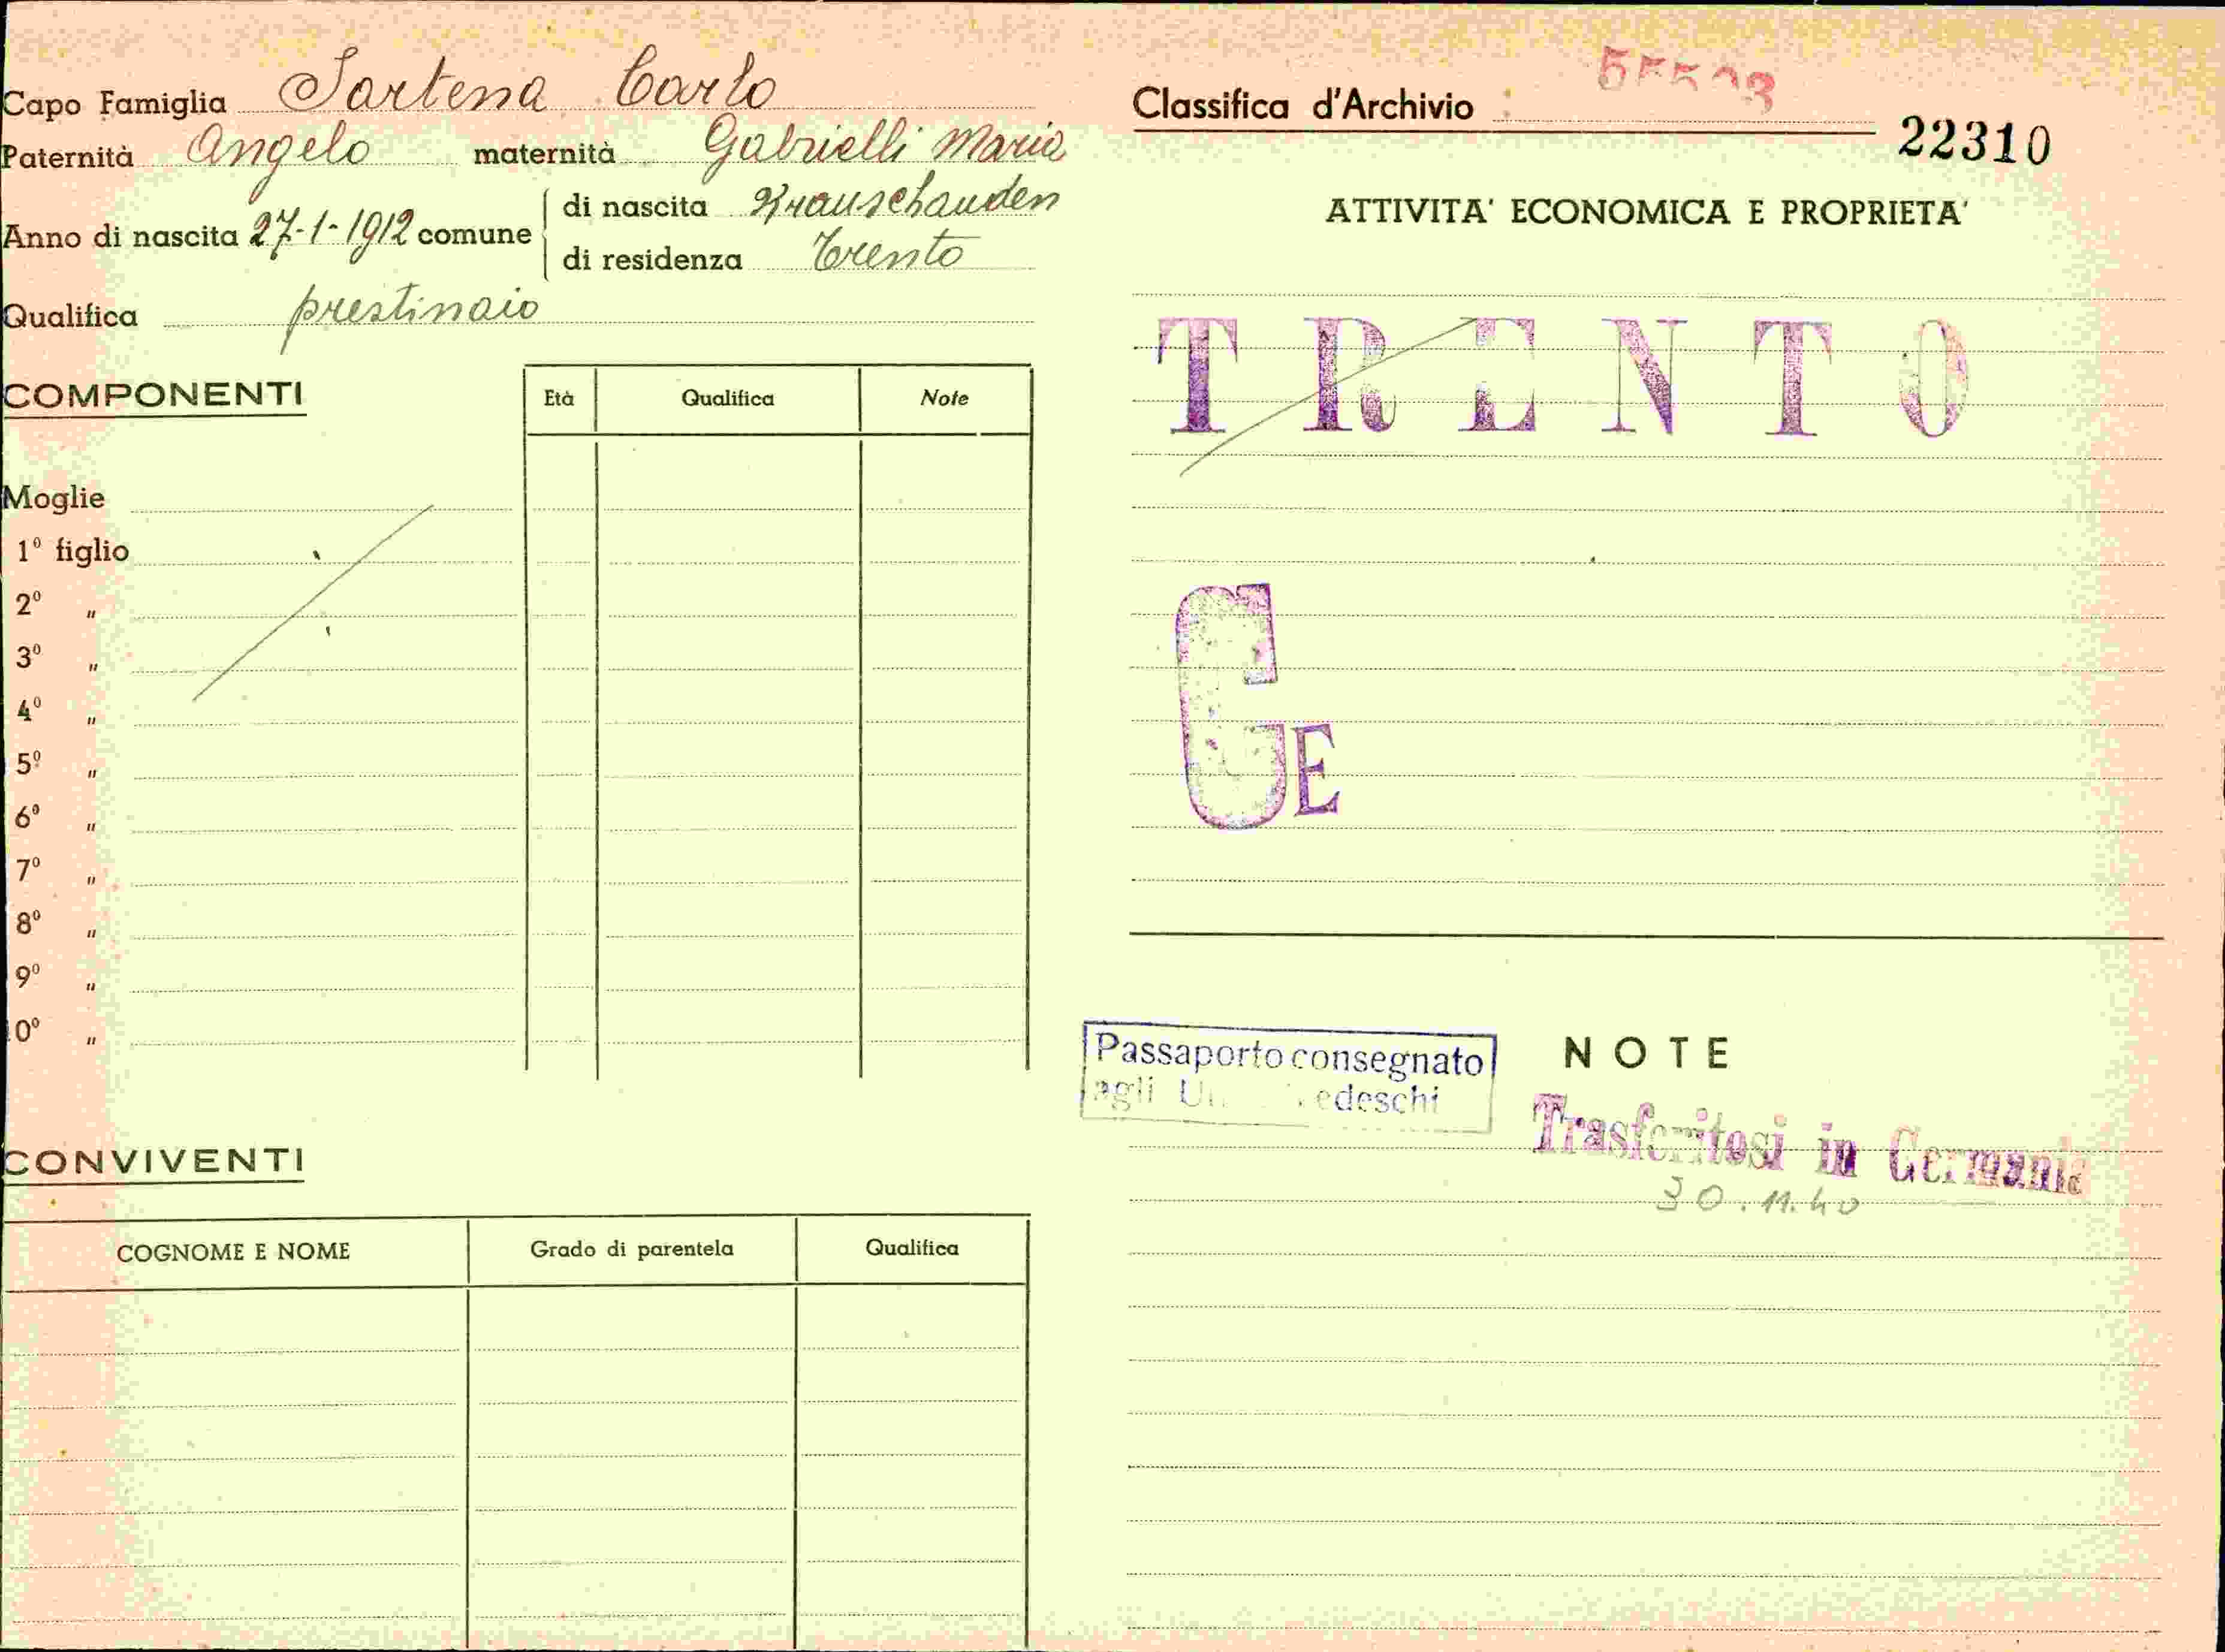 Capo Famiglia Sartena Carlo
Paternità Angelo maternità Gabrielli Maria
Anno di nascita 27-1-1912 comune di nascita
di residenza Trento
Qualifica prestinaio
COMPONENTI
Età Qualifica Note
Moglie
1º figlio
2º "
3º "
4º "
5º "
6º "
7º "
8º "
9º "
0º "
CONVIVENTI
COGNOME E NOME Grado di parentela Qualifica
Classifica d'Archivio
22310
ATTIVITA' ECONOMICA E PROPRIETA'
TRENTO
GE
Passaporto consegnato
agli
NOTE
Trasferitosi in Germania
30.11.40